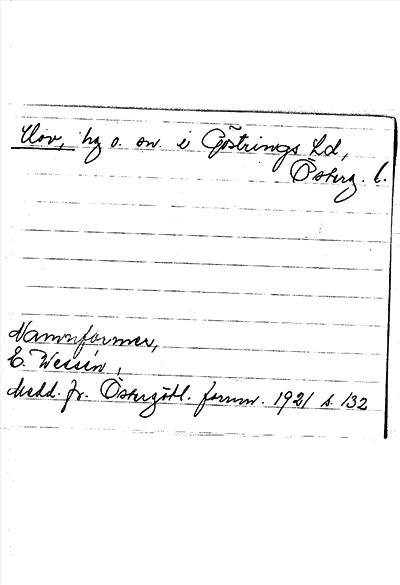 Ulov, hg o. on. i Göstrings hd,
Österg. l.
Namnformer,
E. Wessén,
Medd. fr. Östergötl. fornm. 1921 s. 132